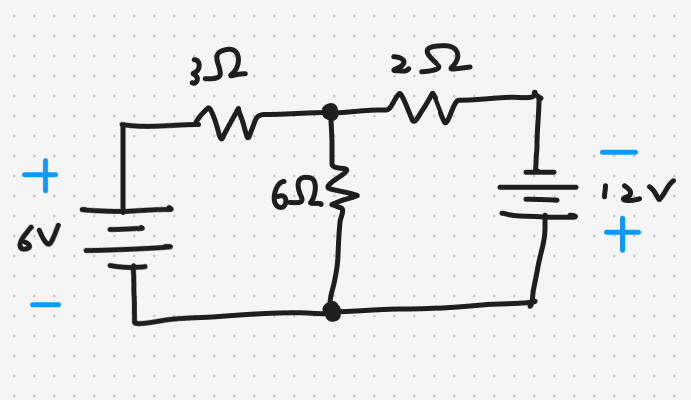 3Ω
2Ω
6Ω
+
6V
−
−
12V
+